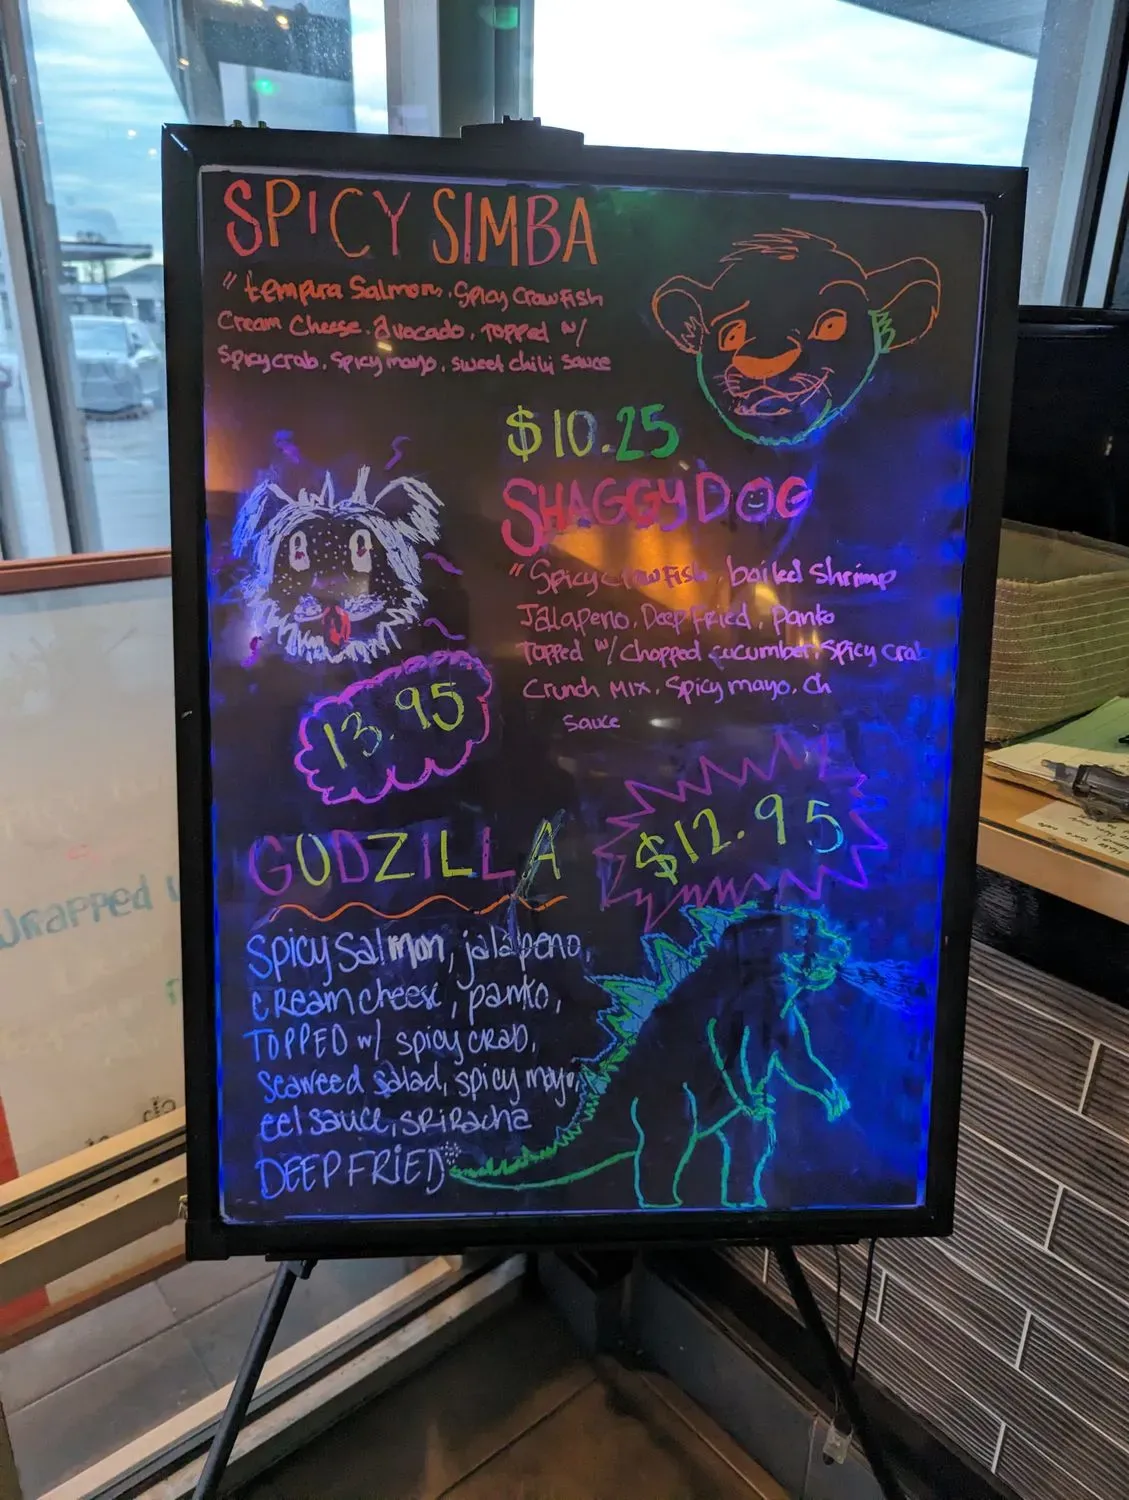 SPICY SIMBA
"tempura Salmon, Spicy Crawfish
Cream Cheese, avocado, Topped w/
Spicy crab, Spicy mayo, sweet chili sauce
$10.25
SHAGGY DOG
"Spicy Crawfish, boiled shrimp
Jalapeno, Deep Fried, panko
Topped w/ chopped cucumber, spicy crab
Crunch MIX, Spicy mayo, Ch
Sauce
13.95
$12.95
GODZILLA
Spicy Salmon, jalapeno,
CReam cheese, panko,
TOPPED w/ spicy CRAB,
Seaweed salad, spicy mayo,
eel sauce, SRiRacha
DEEP FRIED
WRAPPED